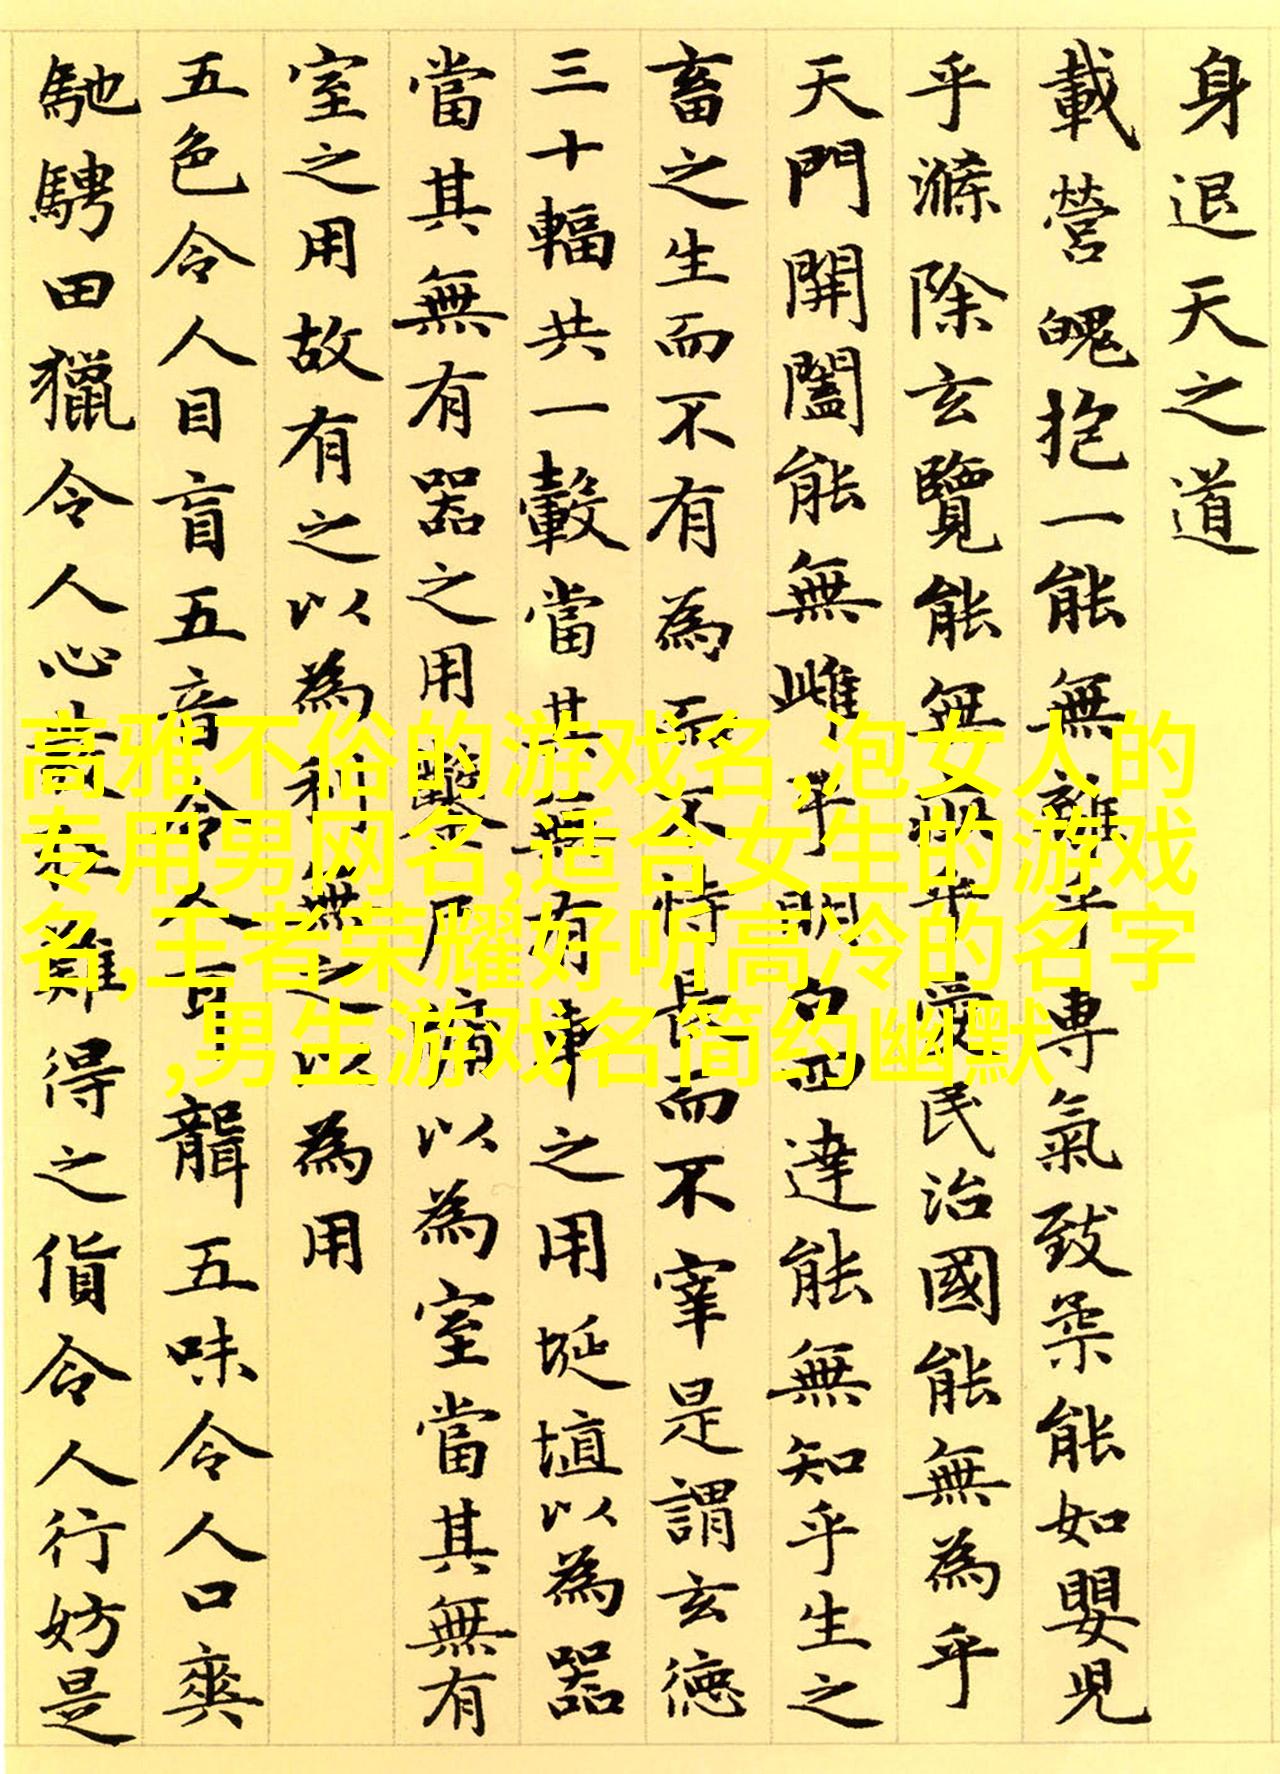 身退天之道
載營魄抱一能無離乎專氣致柔能如嬰兒
乎滌除玄覽能無疵乎愛民治國能無為乎
天門開闔能無雌乎明白四達能無知乎生之
畜之生而不有為而不恃長而不宰是謂玄德
三十輻共一轂當其無有車之用埏埴以為器
當其無有器之用鑿戶牖以為室當其無有
室之用故有之以為利無之以為用
五色令人目盲五音令人耳聾五味令人口爽
馳騁田獵令人心發狂難得之貨令人行妨是
高雅不俗的游戏名,泡女人的
专用男网名,适合女生的游戏
名,王者荣耀好听高冷的名字
,男生游戏名简约幽默